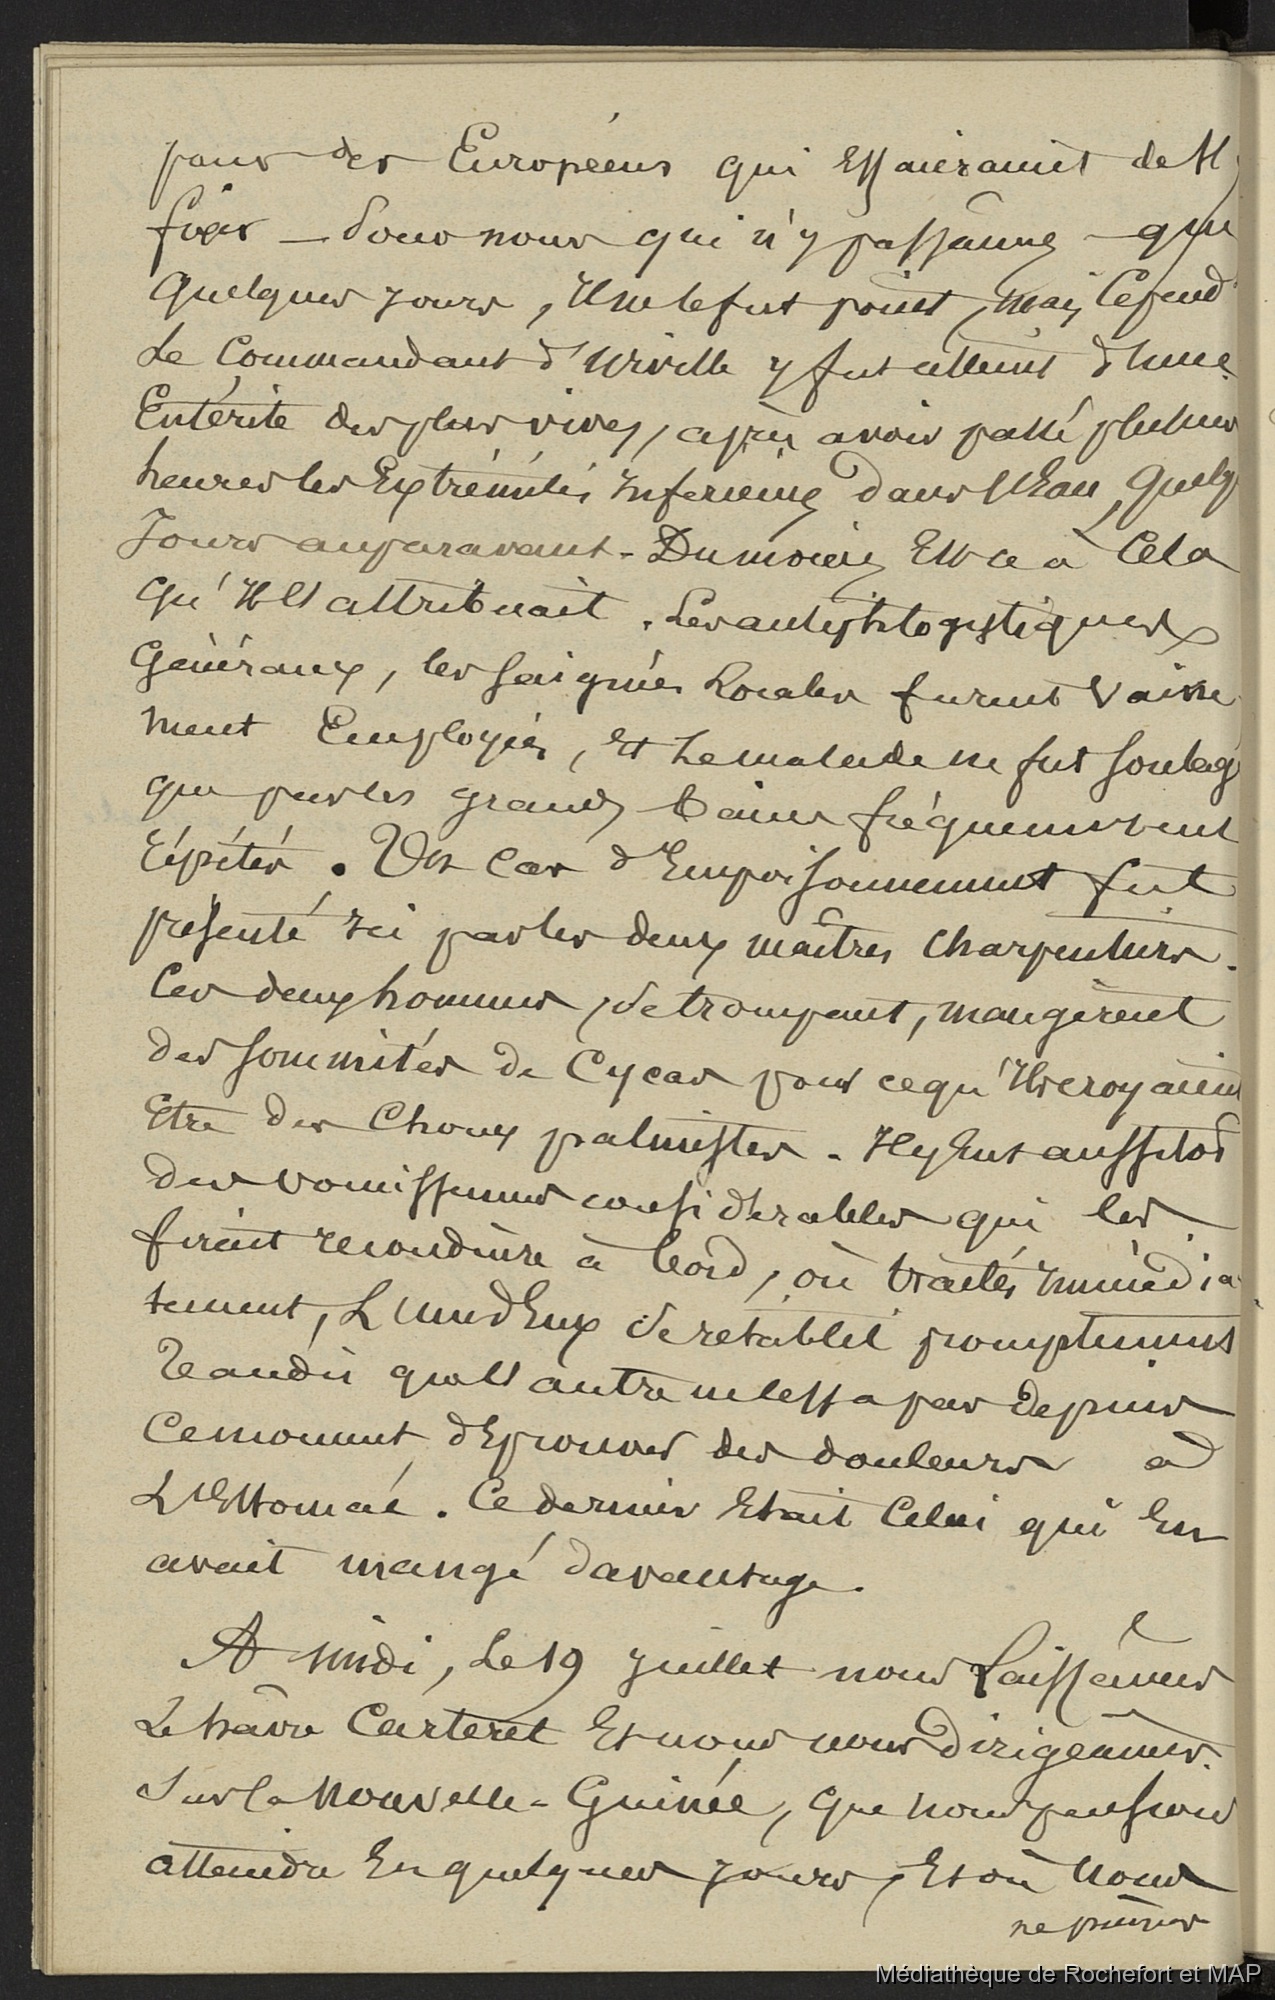 pour des Européens qui Essaieraient de s'y
fixer — Pour nous qui n'y passâmes que
quelques jours, Il ne le fut point, mais Cepend
Le Commandant d'Urville y fut atteint d'une
Entérite des plus vives, après avoir passé plusieurs
heures les Extrémités Inférieures dans l'Eau, quelq
Jours auparavant - Du moins Est-ce à Cela
qu'Il l'attribuait. Les antiphlogistiques
Généraux, les saignées Locales furent Vaine
ment Employées, Et Le malade ne fut soulagé
que par les grands bains fréquemment
répétés. Un Cas d'Empoisonnement fut
présenté Ici par les deux maîtres Charpentiers.
Ces deux hommes, se trompant, mangèrent
des sommités de Cycas pour ce qu'Ils croyaient
Etre des Choux palmistes. Il y Eut aussitôt
des vomissemens considérables qui les
firent reconduire à bord, où traités Immédia
tement, L'un d'Eux se rétablit promptement
Tandis que l'autre ne cessa pas depuis
Ce moment d'Eprouver des douleurs à
L'Estomac. Ce dernier Etait Celui qui En
avait mangé davantage.
A midi, Le 19 Juillet nous Laissâmes
Le hâvre Carteret Et nous nous dirigeâmes
Sur la Nouvelle-Guinée, que nous pensions
atteindre En quelques jours, Et où Nous
ne pûmes
Médiathèque de Rochefort et MAP